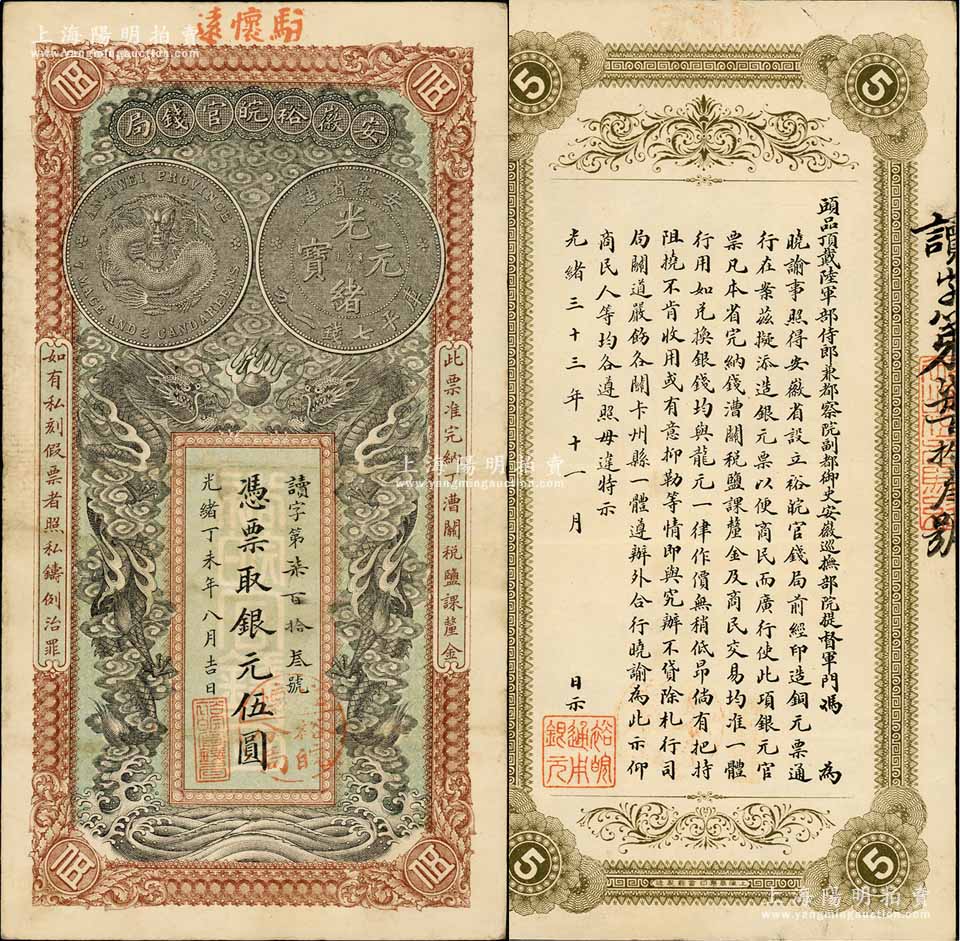 駐懷遠
上海陽明拍賣
www.yangmingauction.com
伍
伍
安徽裕皖官錢局
AN-HWEI PROVINCE
7 MACE AND 2 CANDAREENS
安徽省造
光緒元寶
此票准完納錢漕關稅鹽課釐金
如有私刻假票者照私鑄例治罪
讀字第柒百拾叁號
憑票取銀元伍圓
光緒丁未年八月吉日
伍
伍
5
5
頭品頂戴陸軍部侍郎兼都察院副都御史安徽巡撫部院提督軍門馮 為
曉諭事照得安徽省設立裕皖官錢局前經印造銅元票通
行在案茲擬添造銀元票以便商民而廣行使此項銀元官
票凡本省完納錢漕關稅鹽課釐金及商民交易均准一體
行用如兑換銀錢均與龍元一律作價無稍低昂倘有把持
阻撓不肯收用或有意抑勒等情即與究辦不貸除札行司
局關道嚴飭各關卡州縣一體遵辦外合行曉諭為此示仰
商民人等均各遵照毋違特示
光緒三十三年十一月 日示
裕皖
通本
銀元
讀字第柒百拾叁號
5
5
上海陽明拍賣
www.yangmingauction.com
上海陽明拍賣
www.yangmingauction.com